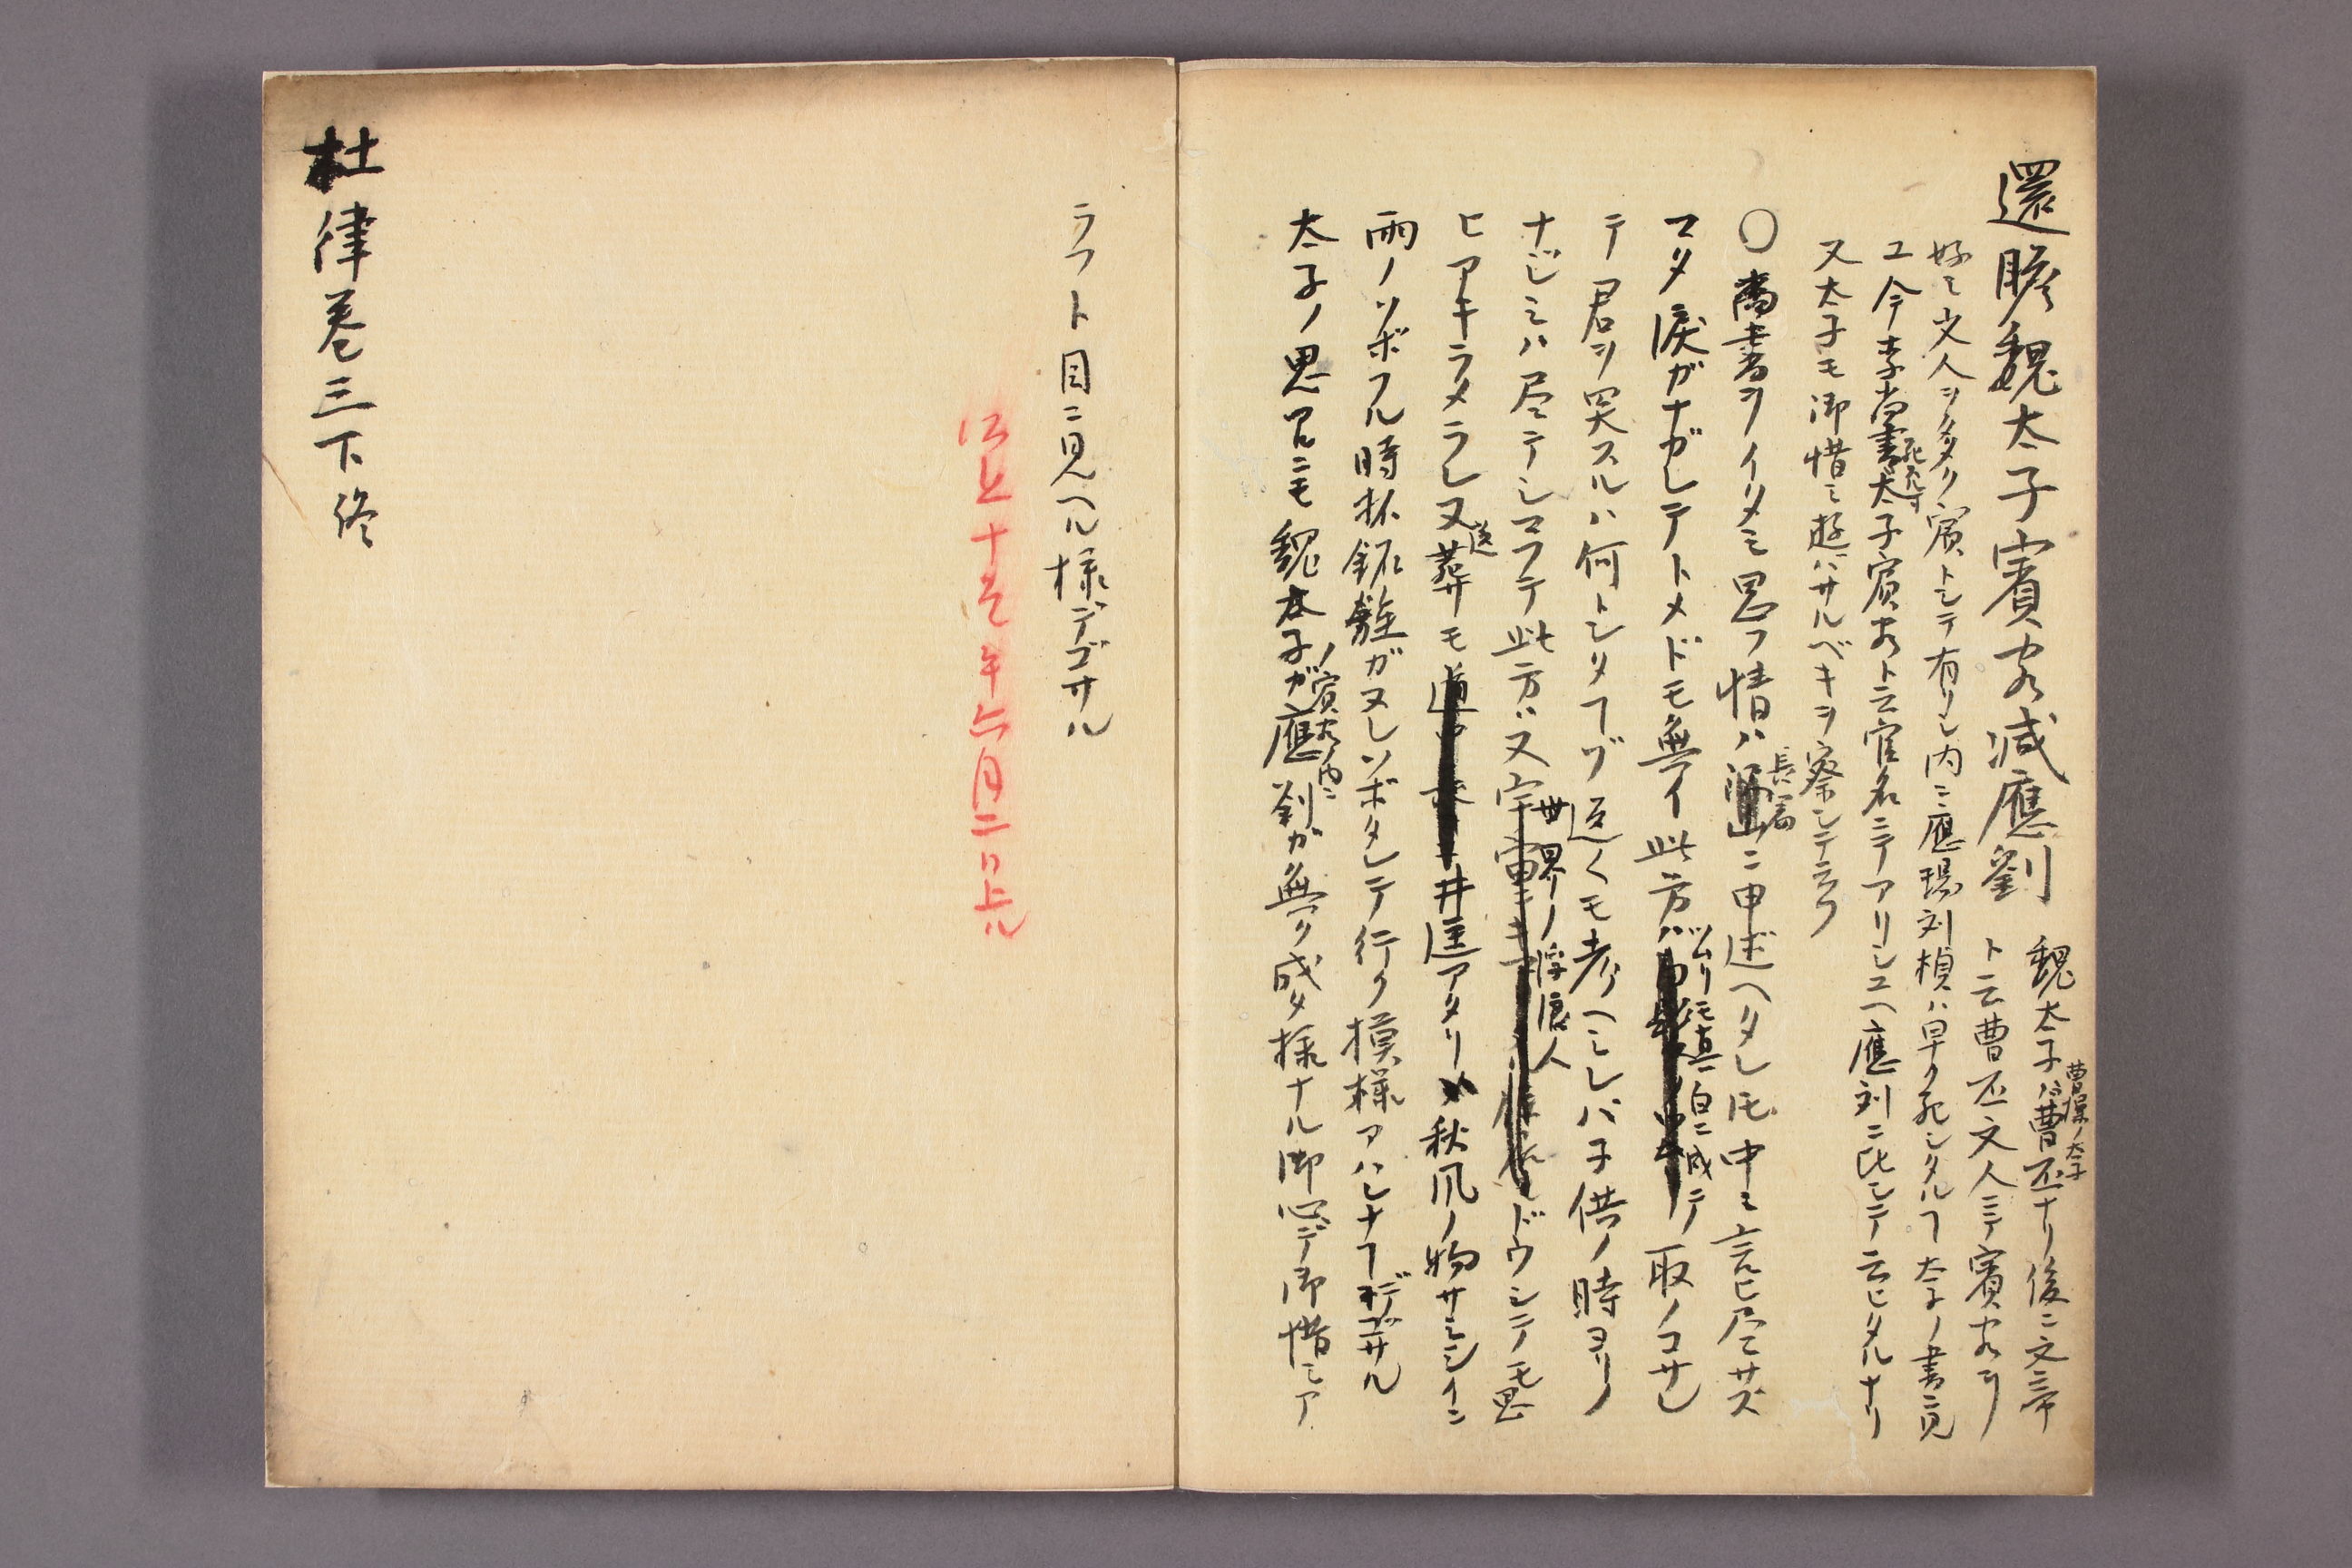 還瞻魏太子賓客減應劉
魏太子ハ曹丕ナリ後ニ文帝
曹操ノ太子
ト云曹丕文人ニテ賓客ヲ
好ミ文人ヲ多ク賓トシテ有リシ内ニ應瑒刘楨ハ早ク死シタルヿ太子ノ書ニ見
ユ今李尚書太子賓客ト云官名ニテアリシユヘ應刘ニ比シテ云ヒタルナリ
又太子モ御惜ミ遊バサルベキヲ察シテ云フ
〇尚書ヲイタミ思フ情ハ
長ゝ
ニ申述ヘタレ𪜈中ミ言ヒ尽サズ
マタ涙ガナガレテトメドモ無イ此方ハ
ツムリモ真白ニ成テ
取ノコサレ
テ君ヲ哭スルハ何トシタヿヅ返くモ考ヘミレバ子供ノ時ヨリノ
ナジミハ尽テシマフテ此方ハ又
世界ノ浮浪人
ドウシテモ思
ヒアキラメラレヌ葬モ
送
井涯アタリ
秋風ノ物サミシイニ
雨ノソボフル時
ガヌレソボタレテ行ク摸様アハレナヿデゴザル
太子ノ思召ニモ魏太子ガ應
ノ賓客ノ内ニ
劉ガ無ク成タ様ナル御心デ御惜ミア
ラフト目ニ見ヘル様デゴザル
十
年六月二日上ル
杜律巻三下終